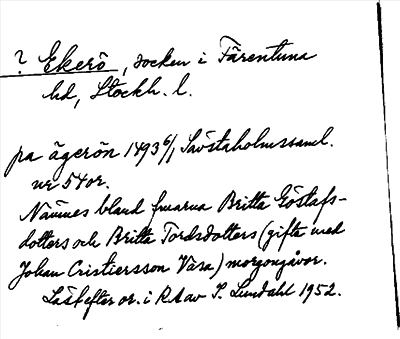 ? Ekerö, socken i Färentuna
hd, Stockh. l.
pa ägerön 1493 6/1 Sävstaholmssaml.
nr 54 or.
Nämnes bland fruarna Britta Göstafs-
dotters och Britta Tordsdotters (gifta med
Johan Cristiersson Vasa) morgongåvor.
Läst efter or. i RA av S. Lundahl 1952.